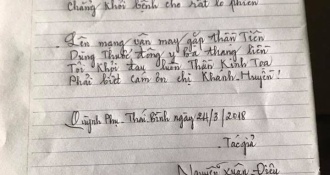 chẳng khỏi bệnh cho rất lo phiền
Lên mạng vận may gặp thần Tiên
Dùng Thuốc đông y Ba thang liền
Tôi Khỏi tay luôn Thần Kinh Tọa
Phải biết cám ơn chị Khánh Huyền!
Quỳnh Phụ - Thái Bình ngày 24/3/2018
Tác giả
Nguyễn Xuân Điều